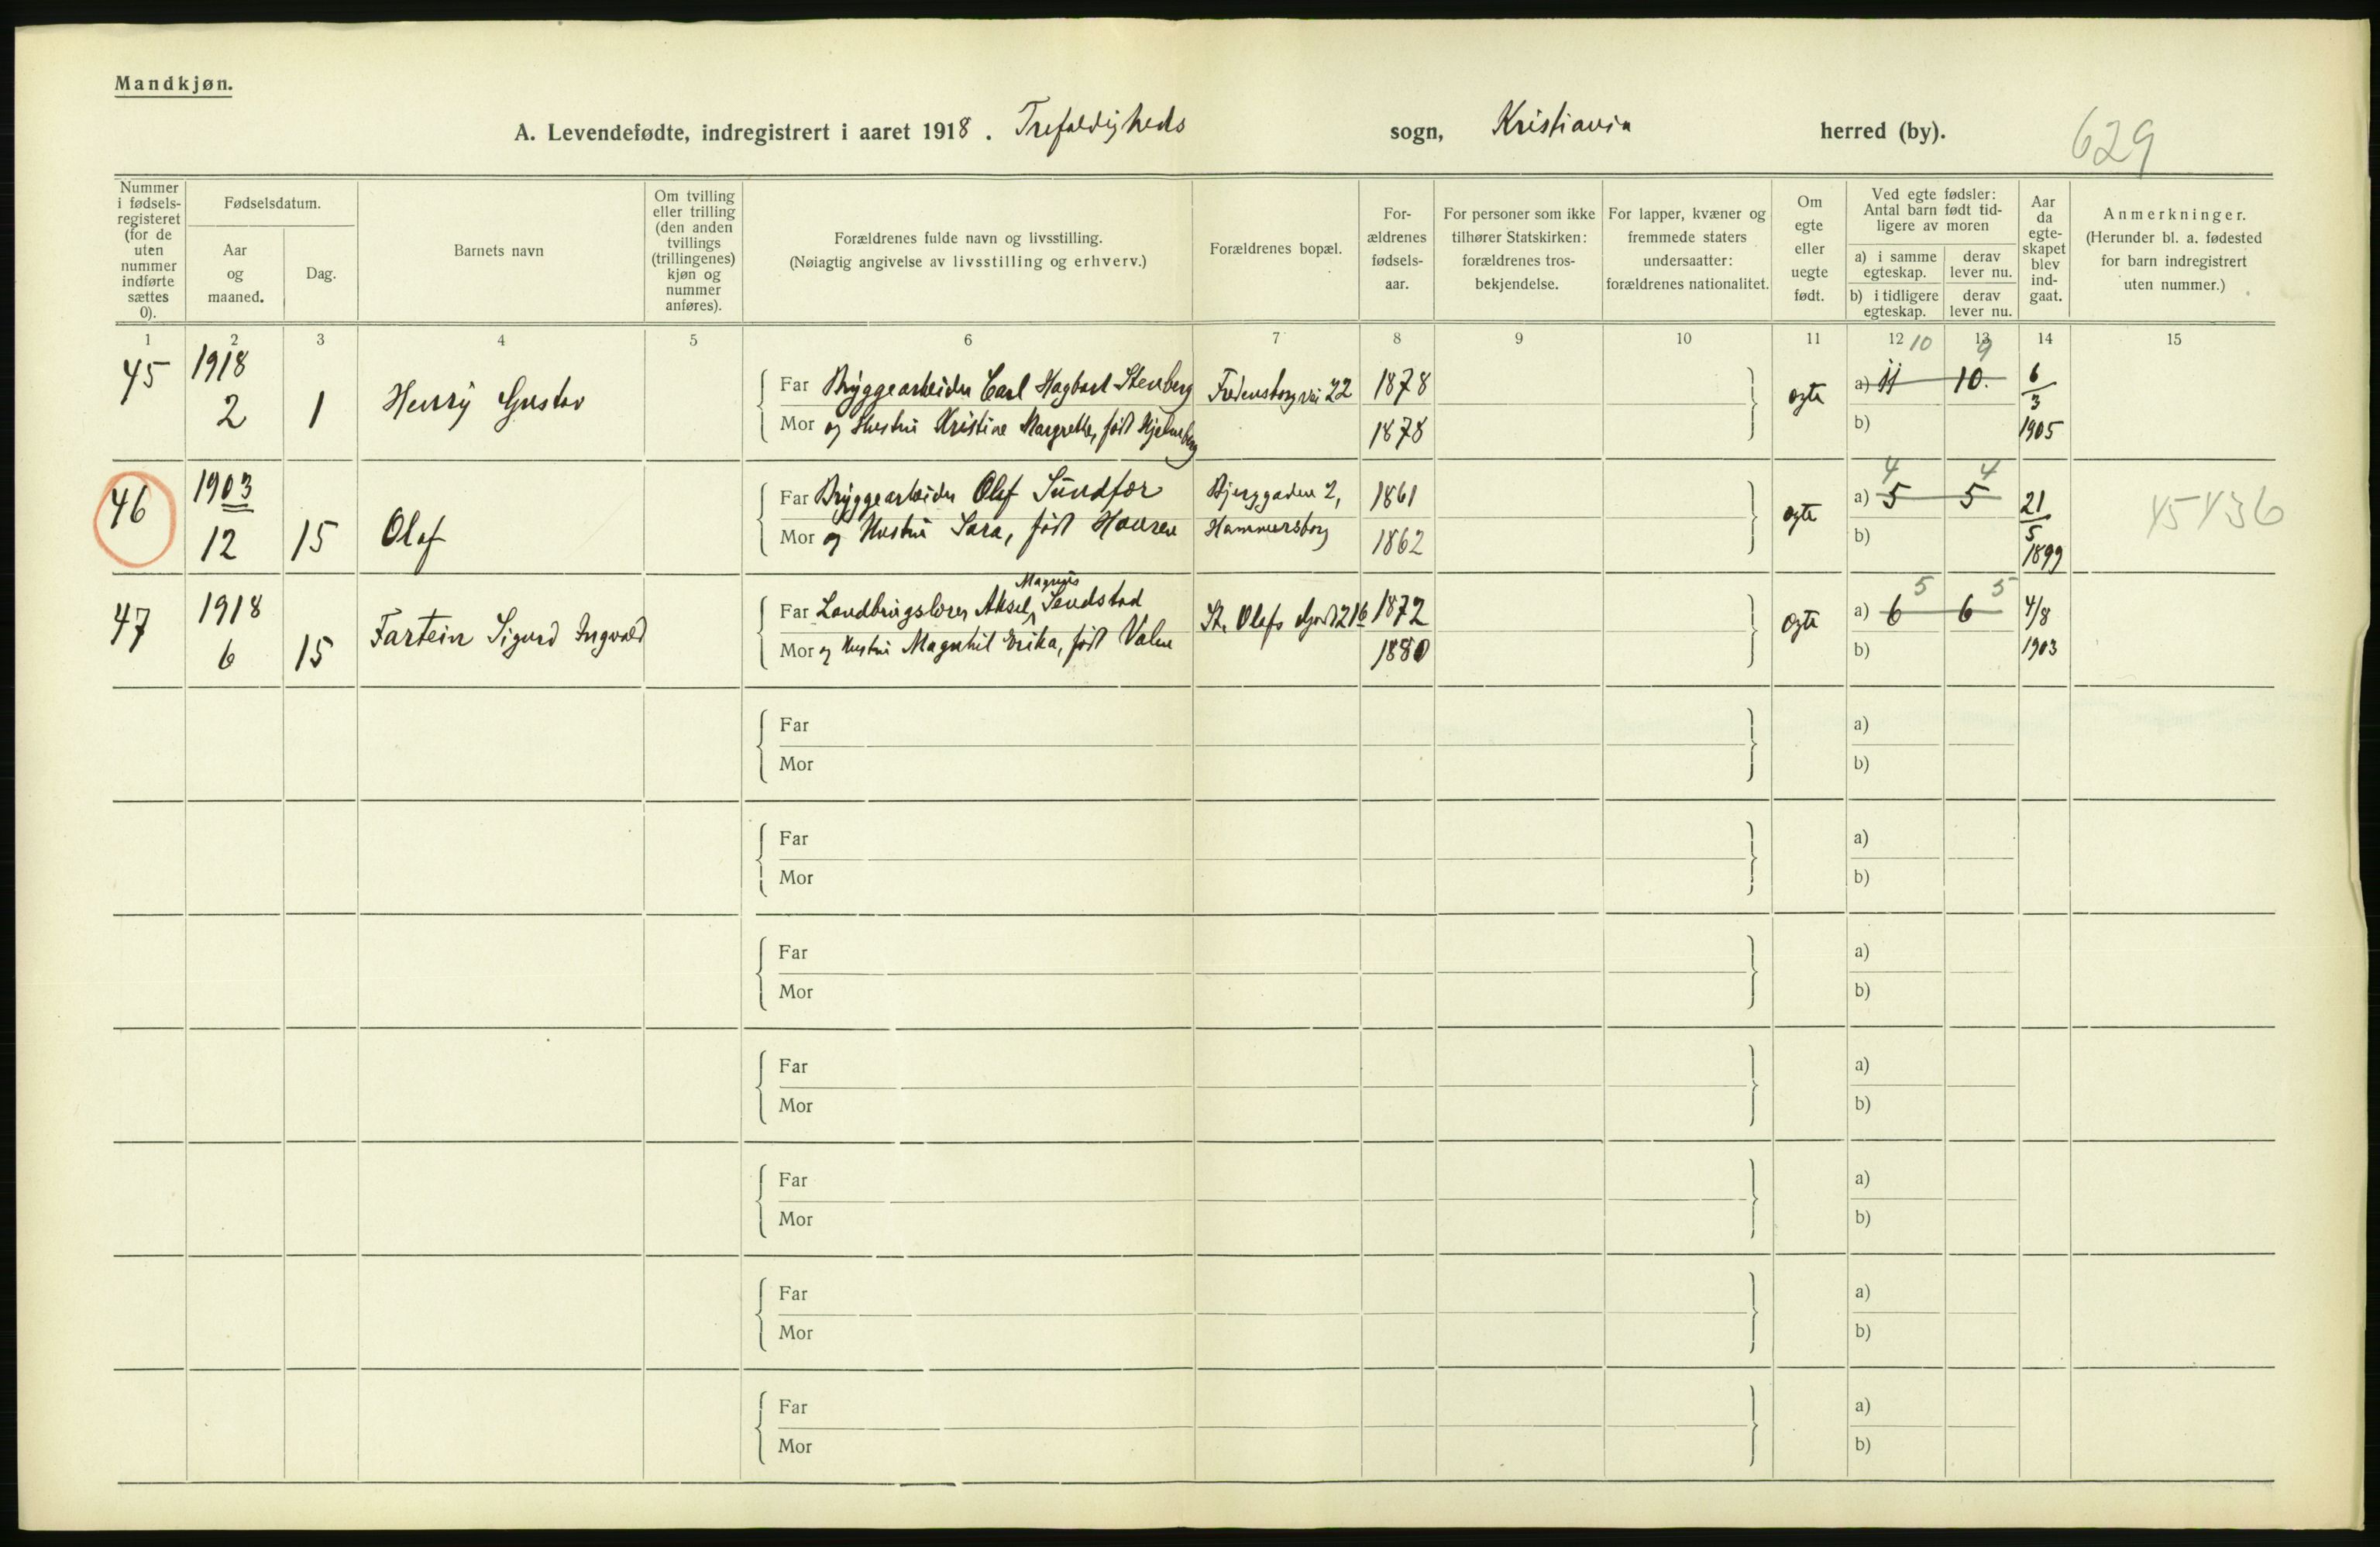 Mandkjøn.
A. Levendefødte, indregistrert i aaret 1918. Trefoldigheds sogn, Kristiania herred (by).
629
Nummer i fødselsregisteret (for de uten nummer indførte sættes 0).
Fødselsdatum.
Aar og maaned.
Dag.
Barnets navn
Om tvilling eller trilling (den anden tvillings (trillingenes) kjøn og nummer anføres).
Forældrenes fulde navn og livsstilling.
(Nøiagtig angivelse av livsstilling og erhverv.)
Forældrenes bopæl.
Forældrenes fødselsaar.
For personer som ikke tilhører Statskirken: forældrenes trosbekjendelse.
For lapper, kvæner og fremmede staters undersaatter: forældrenes nationalitet.
Om egte eller uegte født.
Ved egte fødsler: Antal barn født tidligere av moren
a) i samme egteskap.
derav lever nu.
b) i tidligere egteskap.
derav lever nu.
Aar da egteskapet blev indgaat.
Anmerkninger.
(Herunder bl. a. fødested for barn indregistrert uten nummer.)
1 2 3 4 5 6 7 8 9 10 11 12 13 14 15
45 1918 2 1 Henry Gustav
Far Bryggearbeider Carl Hagbart Stenberg Fredensborgvei 22 1878
Mor og Hustru Kristine Margrethe, født Hjelmberg 1878
egte a) 11 10. 10 9 b) 6/3 1905
46 1903 12 15 Olaf
Far Bryggearbeider Olaf Sundfør Bjerggaden 2, 1861
Mor og Hustru Sara, født Hauren Hammersborg 1862
egte a) 5 5 4 4 b) 21/5 1899
45436
47 1918 6 15 Fartein Sigurd Ingvald
Far Landbrugslærer Aksel Magnus Sendstad St. Olafs 21b 1872
Mor og Hustru Magnhil Erika, født Valen 1880
egte a) 6 6 5 5 b) 4/8 1903
Far a)
Mor b)
Far a)
Mor b)
Far a)
Mor b)
Far a)
Mor b)
Far a)
Mor b)
Far a)
Mor b)
Far a)
Mor b)